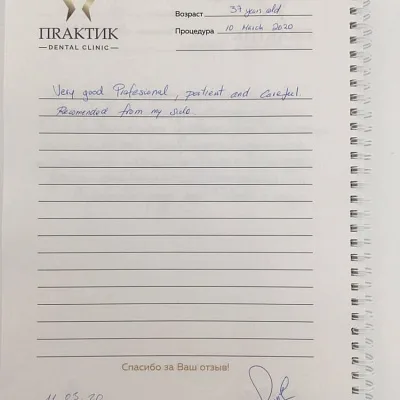 Возраст 37 years old
ПRАКТИК
Процедура 10 March 2020
DENTAL CLINIC
Very good Profesional, patient and careful.
Recomended from my side
Спасибо за Ваш отзыв!
11.03.20